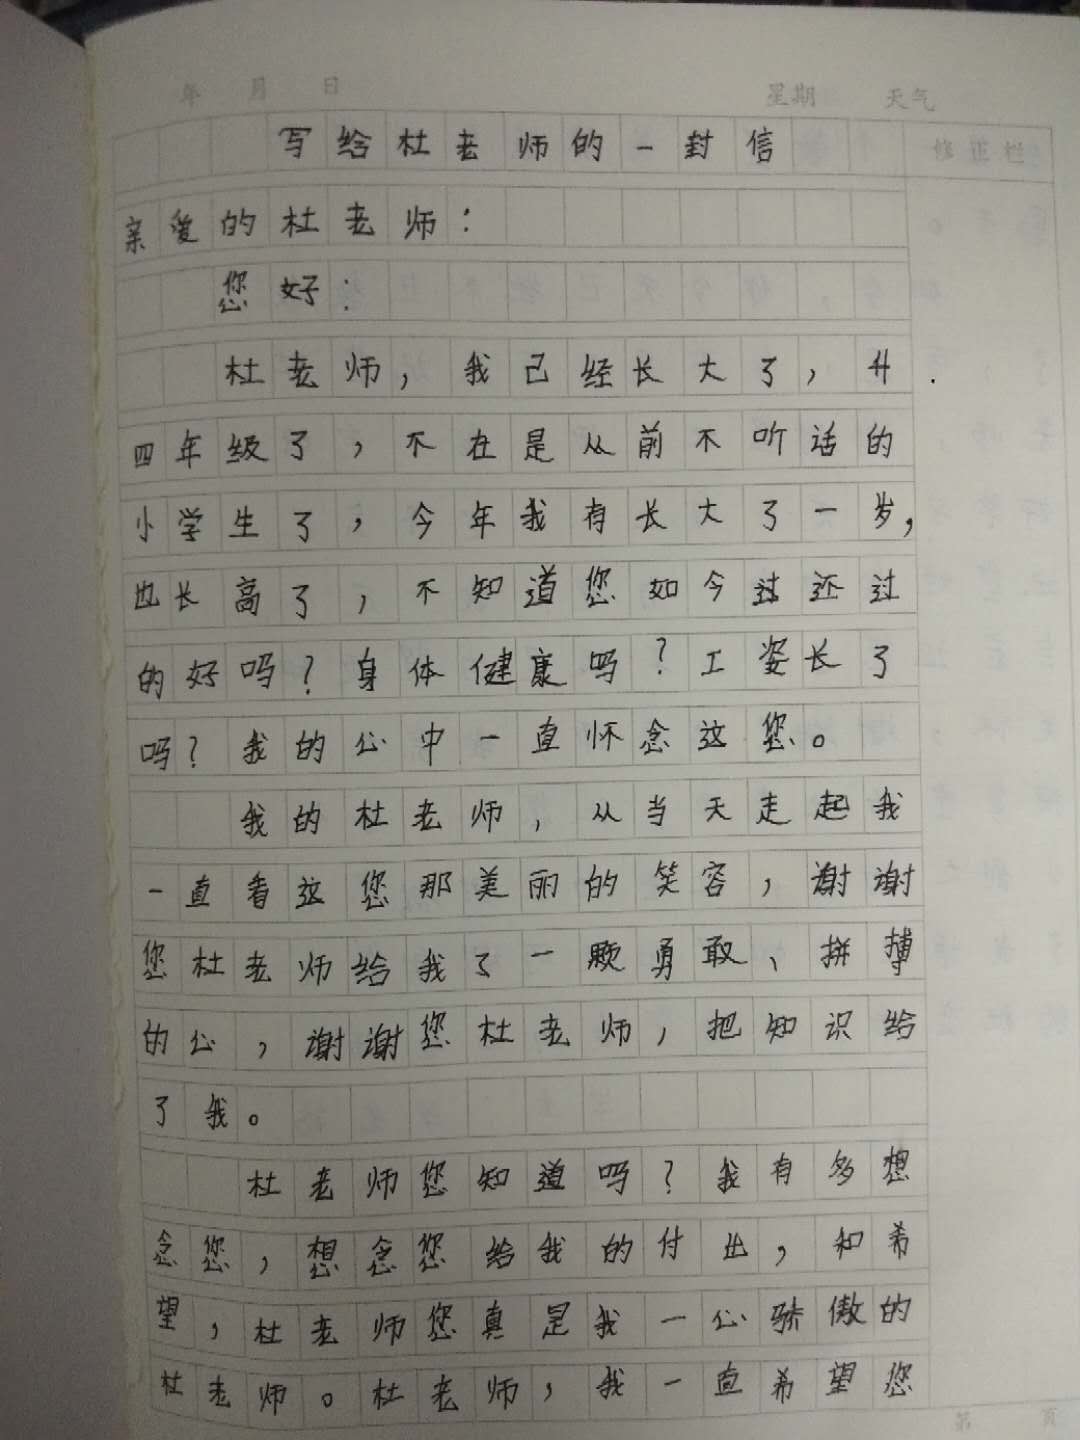 年 月 日 星期 天气
写给杜老师的一封信
修正栏
亲爱的杜老师：
您好：
杜老师，我已经长大了，升
四年级了，不在是从前不听话的
小学生了，今年我有长大了一岁，
也长高了，不知道您如今过还过
的好吗？身体健康吗？工姿长了
吗？我的心中一直怀念这您。
我的杜老师，从当天走起我
一直看这您那美丽的笑容，谢谢
您杜老师给我了一颗勇敢、拼搏
的心，谢谢您杜老师，把知识给
了我。
杜老师您知道吗？我有多想
念您，想念您给我的付出，和希
望，杜老师您真是我一心骄傲的
杜老师。杜老师，我一直希望您
第 页